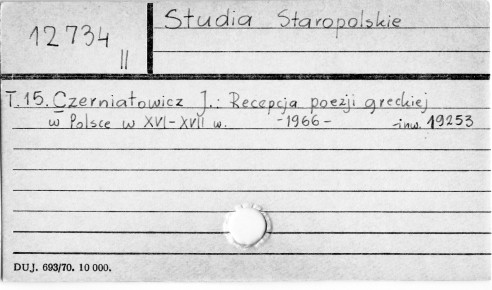 12734
II
Studia Staropolskie
T. 15. Czerniatowicz J.: Recepcja poezji greckiej
w Polsce w XVI-XVII w. -1966- -inw. 19253
DUJ. 693/70. 10 000.